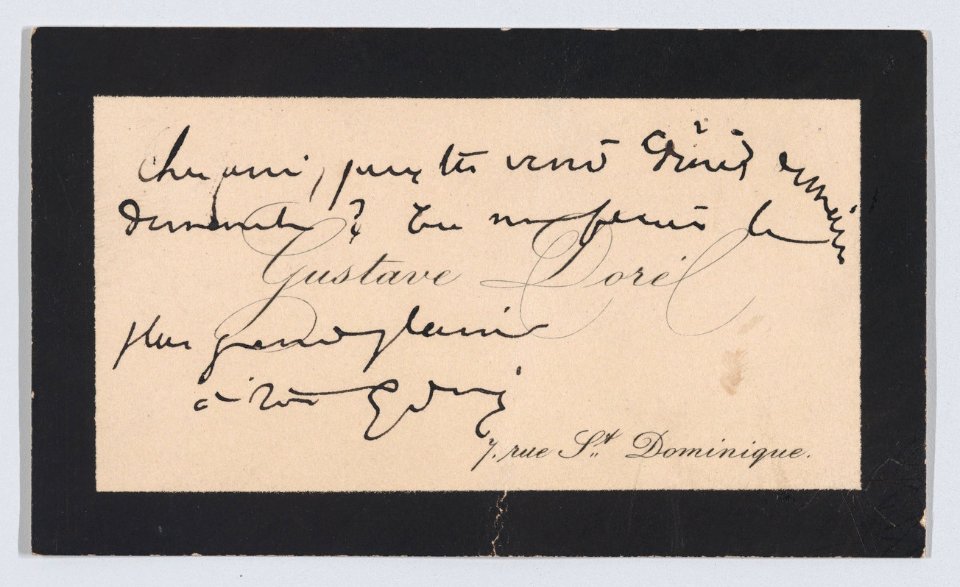 Cher ami, peux tu venir Dîner après
demain ? Tu me feras le
Gustave Doré
plus grand plaisir
à toi G Doré
7, rue St. Dominique.